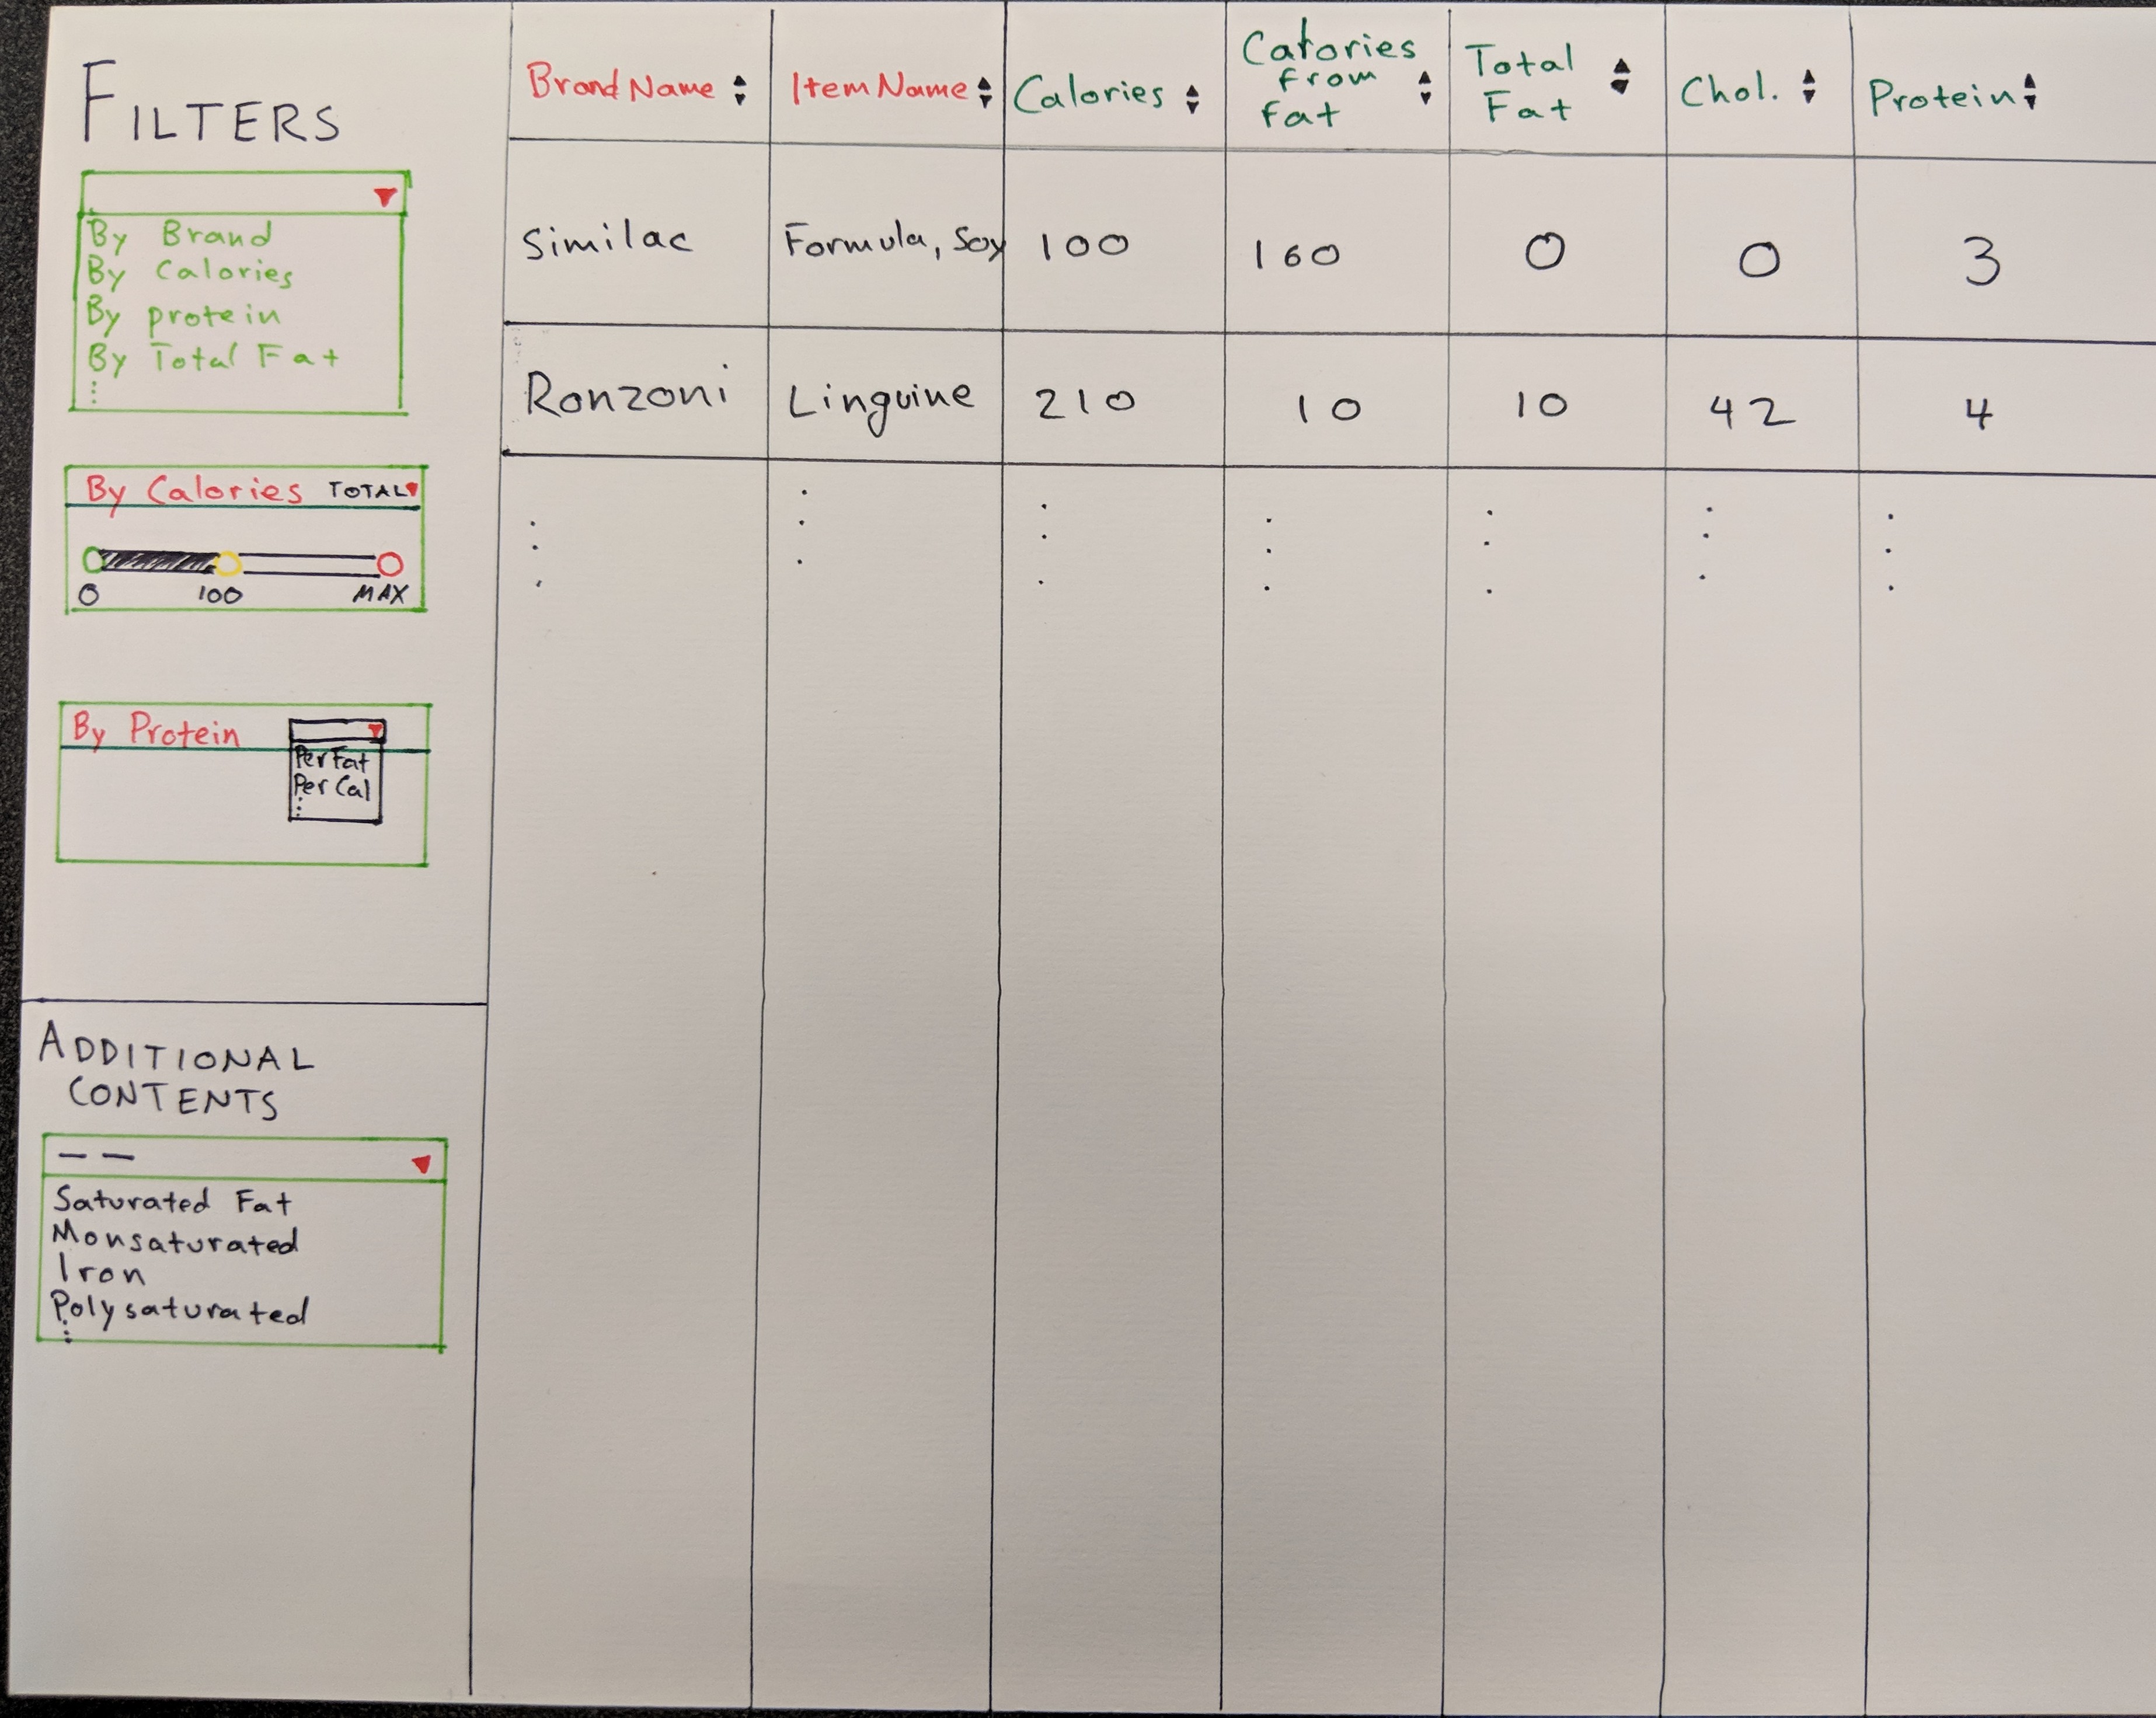 FILTERS
By Brand
By Calories
By protein
By Total Fat
By Calories TOTAL
0 100 MAX
By Protein
Per Fat
Per Cal
ADDITIONAL
CONTENTS
Saturated Fat
Monsaturated
Iron
Polysaturated
Brand Name Item Name Calories Calories from fat Total Fat Chol. Protein
Similac Formula, Soy 100 160 0 0 3
Ronzoni Linguine 210 10 10 42 4